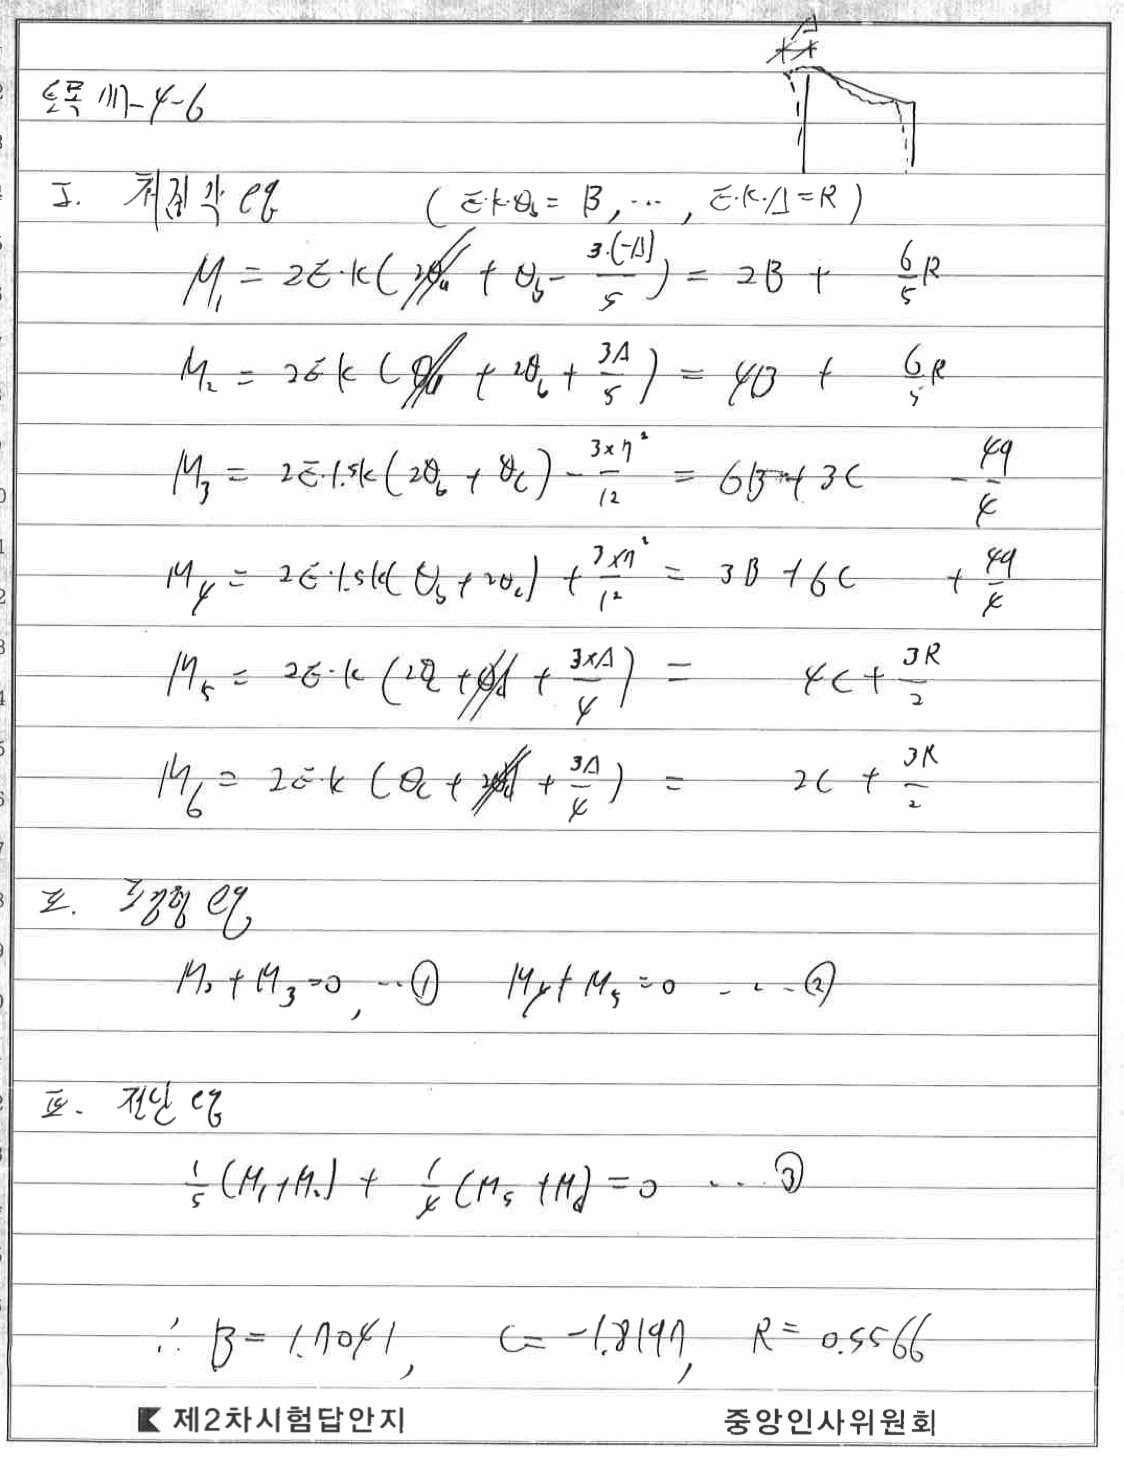 토목 111-4-6
Δ
I. 처짐각 eq (E·k·θb = B, ···, E·k·Δ = R)
M1 = 2E·k(2θa + θb - 3·(-Δ)/5) = 2B + 6/5 R
M2 = 2Ek(θa + 2θb + 3Δ/5) = 4B + 6/5 R
M3 = 2E·1.5k(2θb + θc) - 3×7²/12 = 6B + 3C - 49/4
M4 = 2E·1.5k(θb + 2θc) + 3×7²/12 = 3B + 6C + 49/4
M5 = 2E·k(2θc + θd + 3×Δ/4) = 4C + 3R/2
M6 = 2E·k(θc + 2θd + 3Δ/4) = 2C + 3R/2
II. eq
M2 + M3 = 0, ··· ① M4 + M5 = 0 ··· ②
III. 전단 eq
1/5 (M1 + M2) + 1/4 (M5 + M6) = 0 ··· ③
∴ B = 1.7041, C = -1.8197, R = 0.5566
제2차시험답안지 중앙인사위원회